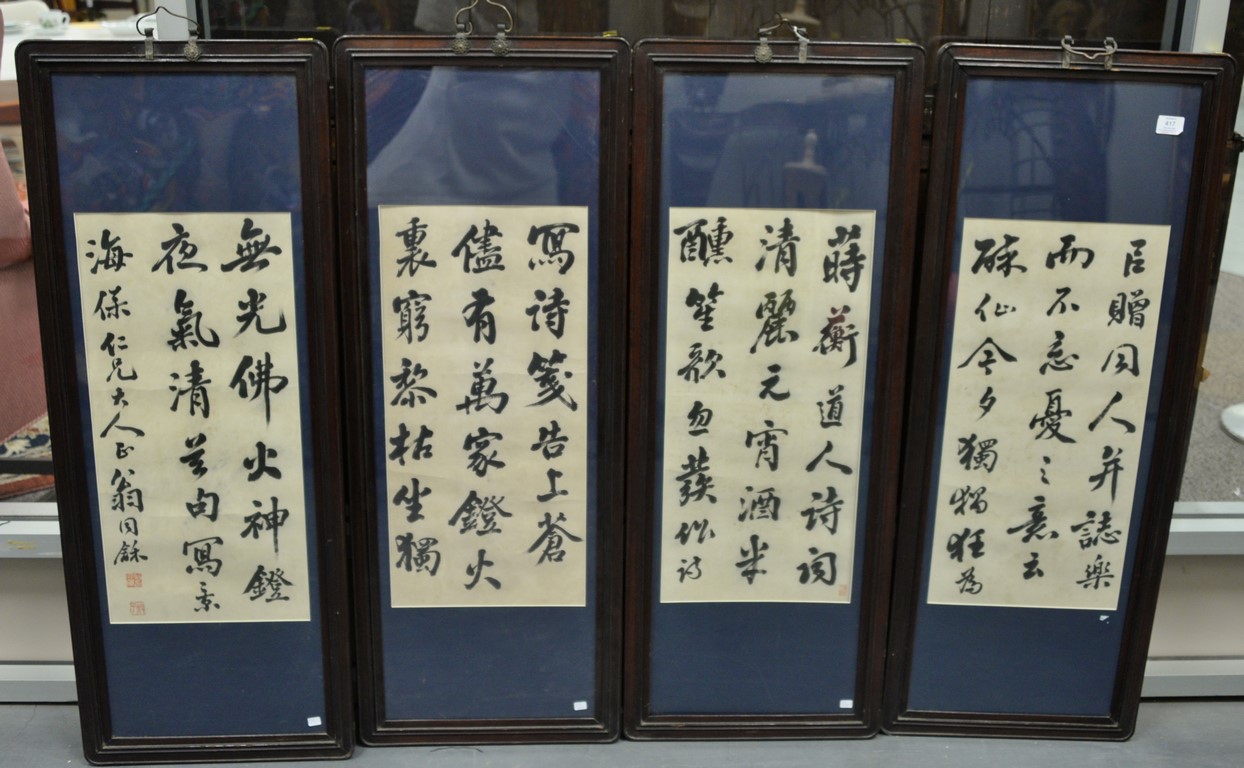 蒔蘅道人詩詞
清麗元宵酒半
醺笙歌忽發作詩
㠯贈同人并誌樂
而不忘憂之意云
酥仙今夕獨猖狂為
寫詩箋告上蒼
儘有萬家鐙火
裏窮黎枯坐獨
無光佛火神鐙
夜氣清句寫
海保仁兄大人正翁同龢
417